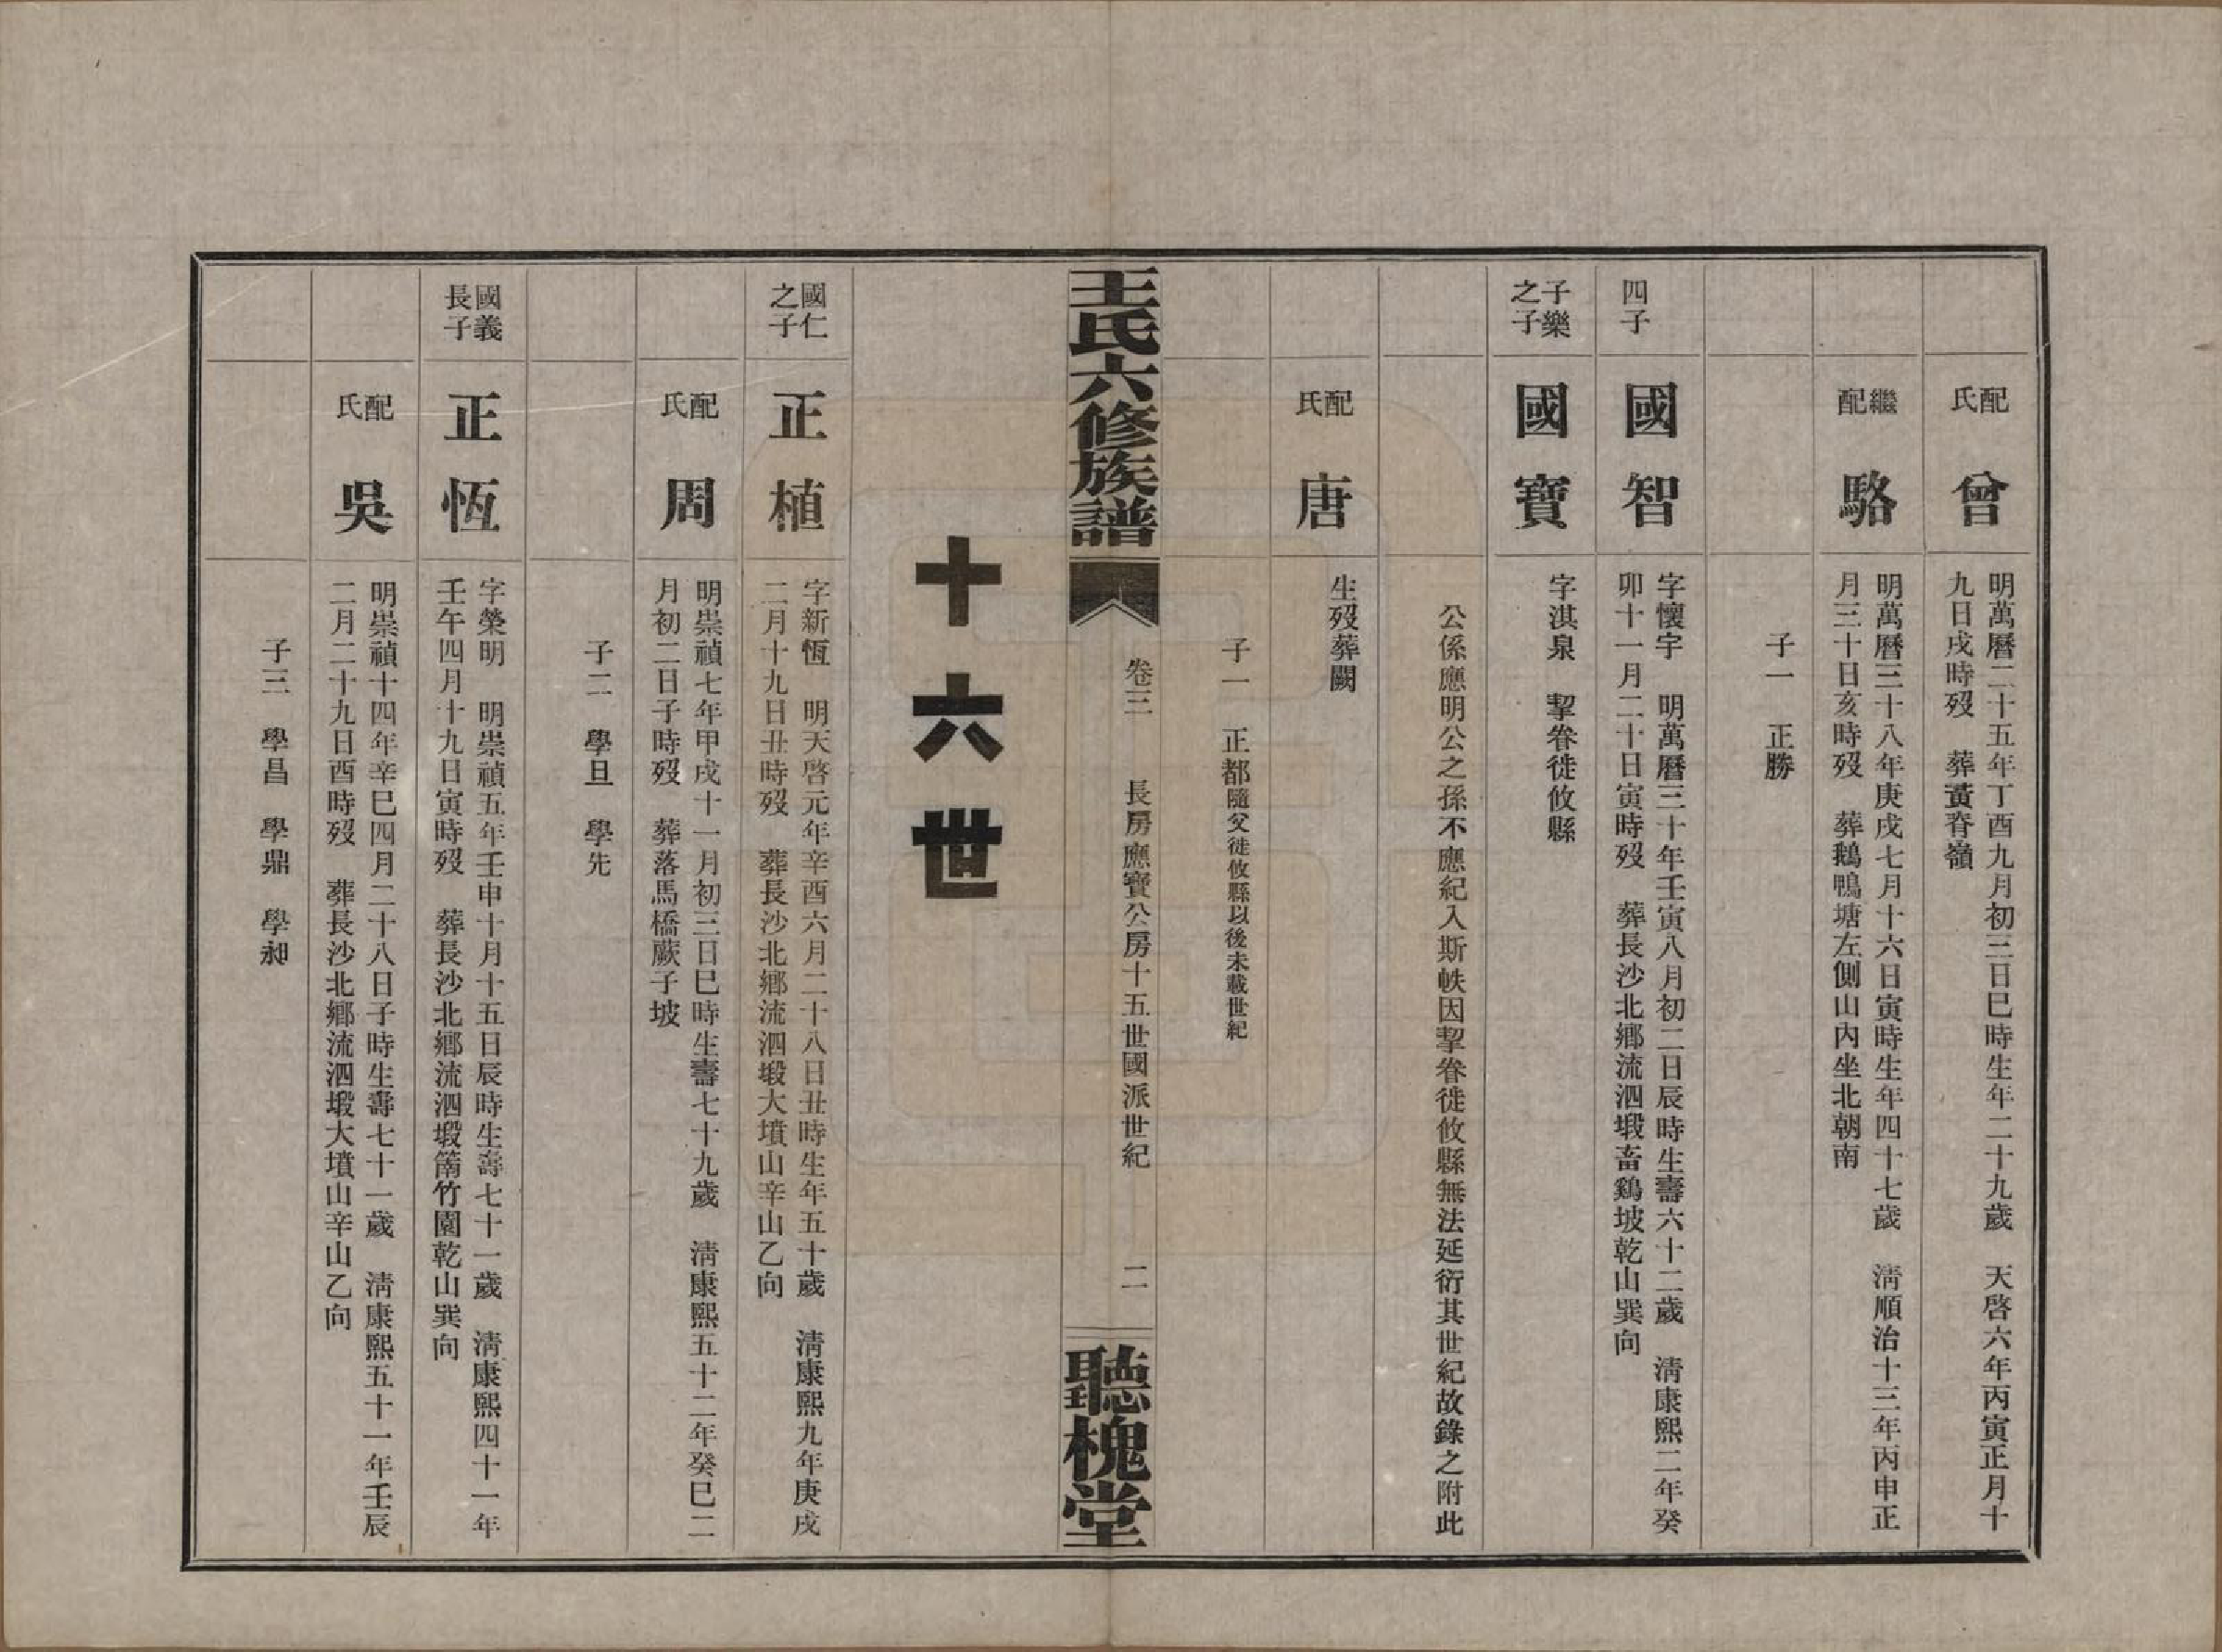 配氏
曾
明萬曆二十五年丁酉九月初三日巳時生年二十九歲　天啓六年丙寅正月十
九日戌時歿　葬黃脊嶺
繼配
駱
明萬曆三十八年庚戌七月十六日寅時生年四十七歲　淸順治十三年丙申正
月三十日亥時歿　葬鵝鴨塘左側山內坐北朝南
子一　正勝
四子
國智
字懷宇　明萬曆三十年壬寅八月初二日辰時生壽六十二歲　淸康熙二年癸
卯十一月二十日寅時歿　葬長沙北鄉流泗塅畜鷄坡乾山巽向
子樂
之子
國寶
字淇泉　挈眷徙攸縣
公係應明公之孫不應紀入斯帙因挈眷徙攸縣無法延衍其世紀故錄之附此
配氏
唐
生歿葬闕
子一　正都隨父徙攸縣以後未載世紀
王氏六修族譜
卷三　長房應寶公房十五世國派世紀　二
聽槐堂
十六世
國仁
之子
正植
字新恆　明天啓元年辛酉六月二十八日丑時生年五十歲　淸康熙九年庚戌
二月十九日丑時歿　葬長沙北鄉流泗塅大墳山辛山乙向
配氏
周
明崇禎七年甲戌十一月初三日巳時生壽七十九歲　淸康熙五十二年癸巳二
月初二日子時歿　葬落馬橋蕨子坡
子二　學旦　學先
國義
長子
正恆
字榮明　明崇禎五年壬申十月十五日辰時生壽七十一歲　淸康熙四十一年
壬午四月十九日寅時歿　葬長沙北鄉流泗塅箭竹園乾山巽向
配氏
吳
明崇禎十四年辛巳四月二十八日子時生壽七十一歲　淸康熙五十一年壬辰
二月二十九日酉時歿　葬長沙北鄉流泗塅大墳山辛山乙向
子三　學昌　學鼎　學昶